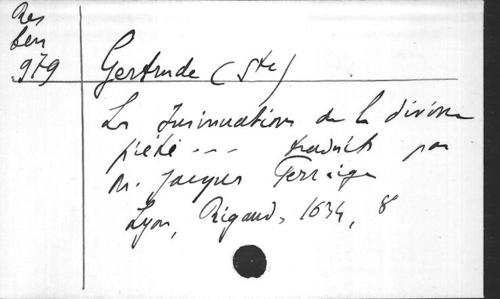 Res
ben
979
Gertrude (Ste)
Les Insinuations de la divine
piété --- traduits par
M. Jacques Ferraige
Lyon, Rigaud, 1634, 8